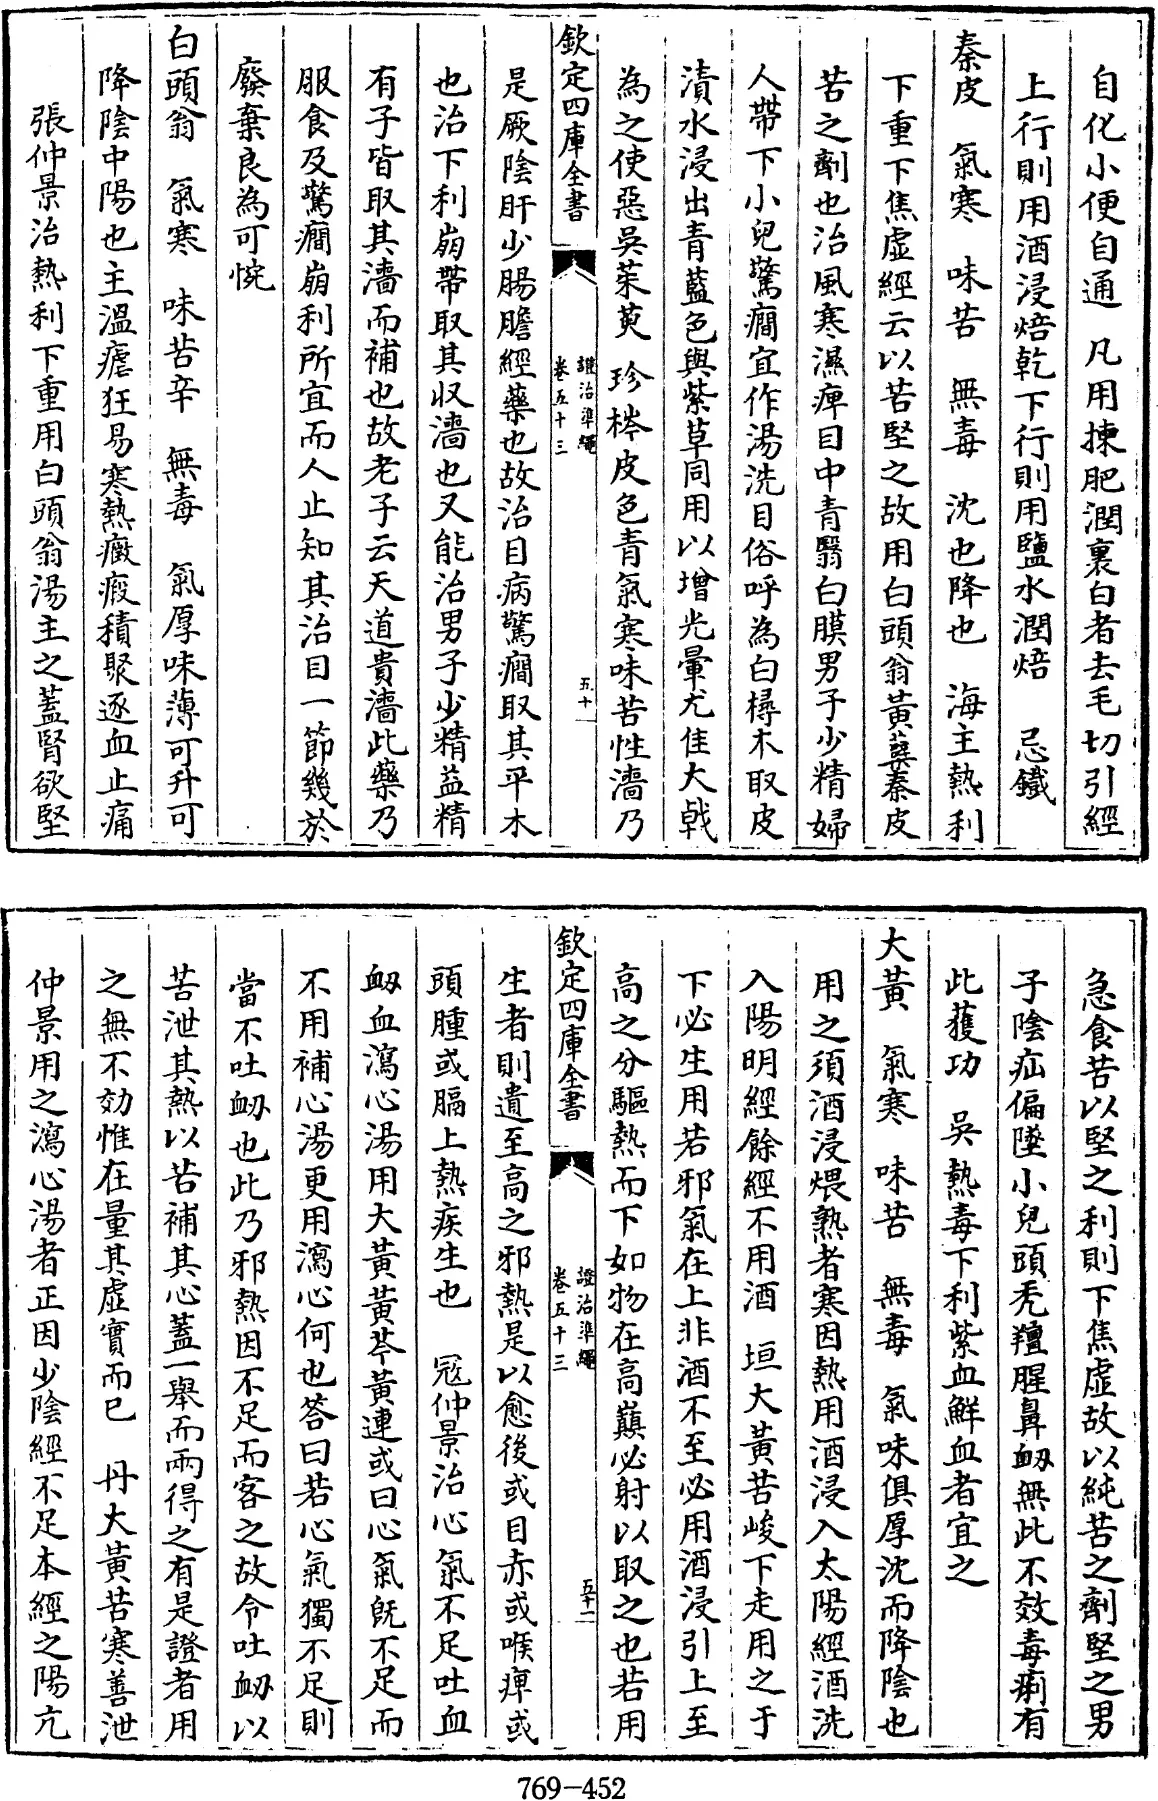 自化小便自通　凡用揀肥潤裏白者去毛切引經
上行則用酒浸焙乾下行則用鹽水潤焙　忌鐵
秦皮　氣寒　味苦　無毒　沈也降也　海主熱利
下重下焦虛經云以苦堅之故用白頭翁黃蘗秦皮
苦之劑也治風寒濕痺目中青翳白膜男子少精婦
人帶下小兒驚癎宜作湯洗目俗呼為白樳木取皮
漬水浸出青藍色與紫草同用以增光暈尤佳大戟
為之使惡吳茱萸　珍梣皮色青氣寒味苦性濇乃
欽定四庫全書
證治準繩
卷五十三
五十
是厥陰肝少腸膽經藥也故治目病驚癎取其平木
也治下利崩帶取其収濇也又能治男子少精益精
有子皆取其濇而補也故老子云天道貴濇此藥乃
服食及驚癎崩利所宜而人止知其治目一節幾於
廢棄良為可惋
白頭翁　氣寒　味苦辛　無毒　氣厚味薄可升可
降陰中陽也主溫瘧狂易寒熱癥瘕積聚逐血止痛
張仲景治熱利下重用白頭翁湯主之蓋腎欲堅
急食苦以堅之利則下焦虛故以純苦之劑堅之男
子陰疝偏墜小兒頭禿羶腥鼻衂無此不效毒痢有
此獲功　吳熱毒下利紫血鮮血者宜之
大黃　氣寒　味苦　無毒　氣味俱厚沈而降陰也
用之須酒浸煨熟者寒因熱用酒浸入太陽經酒洗
入陽明經餘經不用酒　垣大黃苦峻下走用之于
下必生用若邪氣在上非酒不至必用酒浸引上至
高之分驅熱而下如物在高巔必射以取之也若用
欽定四庫全書
證治準繩
卷五十三
五十一
生者則遺至高之邪熱是以愈後或目赤或喉痺或
頭腫或膈上熱疾生也　冦仲景治心氣不足吐血
衂血瀉心湯用大黃黃芩黃連或曰心氣旣不足而
不用補心湯更用瀉心何也答曰若心氣獨不足則
當不吐衂也此乃邪熱因不足而客之故令吐衂以
苦泄其熱以苦補其心蓋一舉而兩得之有是證者用
之無不効惟在量其虛實而已　丹大黃苦寒善泄
仲景用之瀉心湯者正因少陰經不足本經之陽亢
769-452